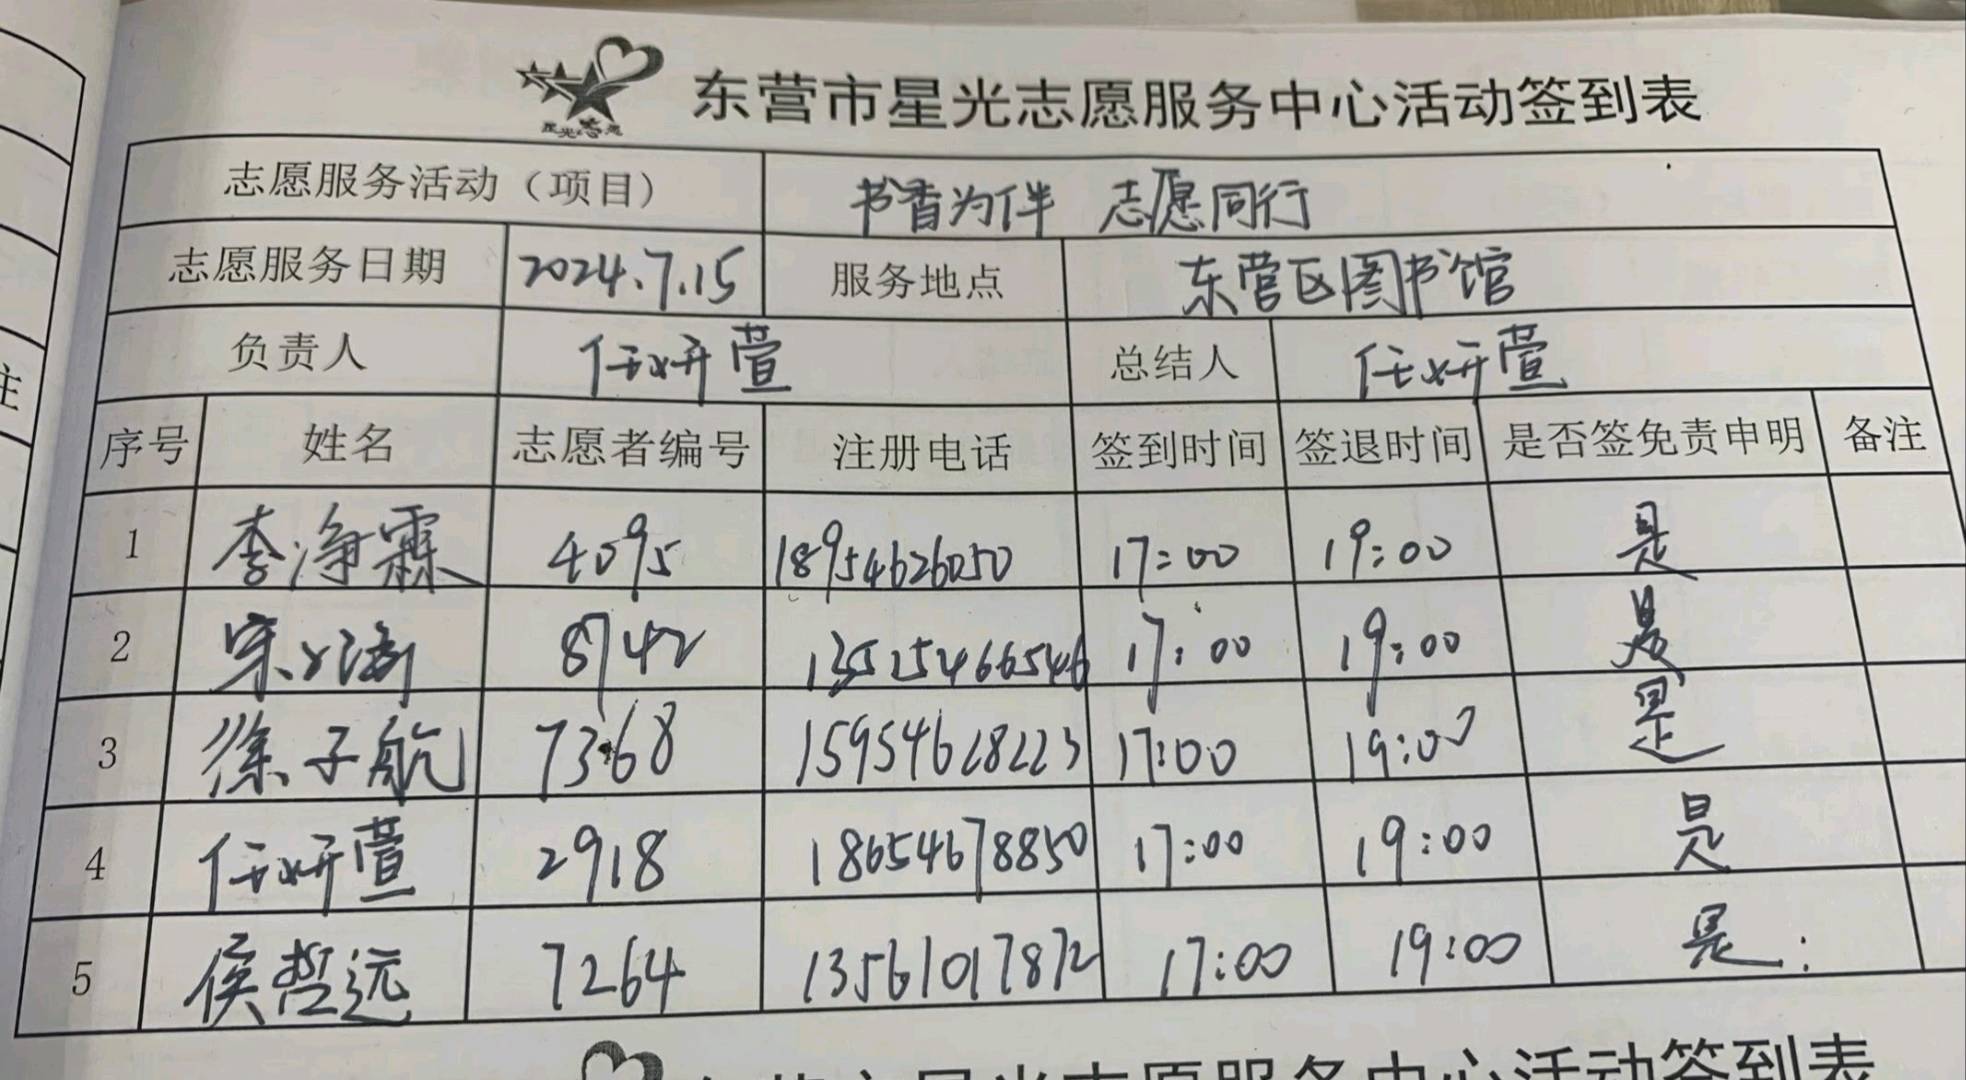 星光志愿
东营市星光志愿服务中心活动签到表
志愿服务活动（项目） 书香为伴 志愿同行
志愿服务日期 2024.7.15 服务地点 东营区图书馆
负责人 任妍萱 总结人 任妍萱
注
序号 姓名 志愿者编号 注册电话 签到时间 签退时间 是否签免责申明 备注
1 李净霖 4095 18954626050 17:00 19:00 是
2 8742 17:00 19:00 是
3 徐子航 7368 15954628223 17:00 19:00 是
4 任妍萱 2918 18654678850 17:00 19:00 是
5 侯哲远 7264 13561017872 17:00 19:00 是
东营市星光志愿服务中心活动签到表